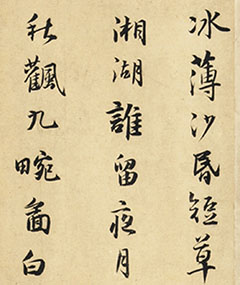 冰薄沙昏短草
湘湖誰留夜月
秋飄九畹啚白